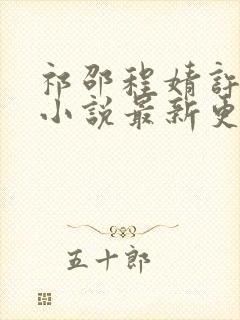 祁邵程婧許
小說最新更
五十郎